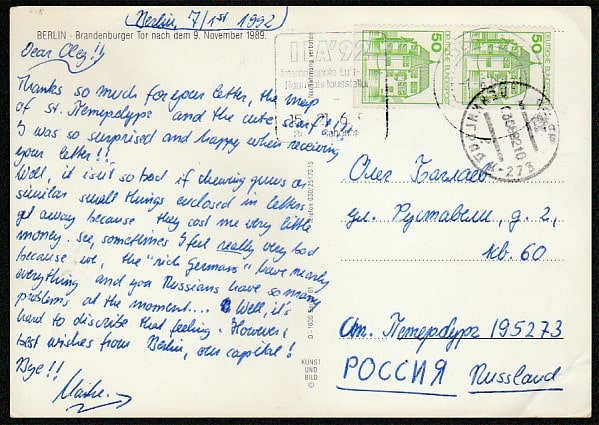 Berlin, 7/1st 1992
BERLIN - Brandenburger Tor nach dem 9. November 1989.
Dear Oleg!!
Thanks so much for your letter, the map
of st. Петербург and the cute scarf!
I was so surprised and happy when receiving
your letter!!
Well, it isn't so bad if chewing gums or
similar small things enclosed in letters
get away because they cost me very little
money. See, sometimes I feel really very bad
because we, the "rich Germans" have nearly
everything and you Russians have so many
problems at the moment... Well, it's
hard to discribe that feeling. However,
best wishes from Berlin, our capital!
Bye!!
KUNST
UND
BILD
©
Nachahmung verboten
Telefon 030/2517015
D - 1000 61
50
50
DEUTSCHE BUNDESPOST
DEUTSCHE BUNDESPOST
ILA'92
Internationale Luft-
Raumfahrtausstellung
15.-21.6.
273
Олег Баглаев
ул. Руставели, д. 2,
кв. 60
Ст. Петербург 195273
РОССИЯ Russland